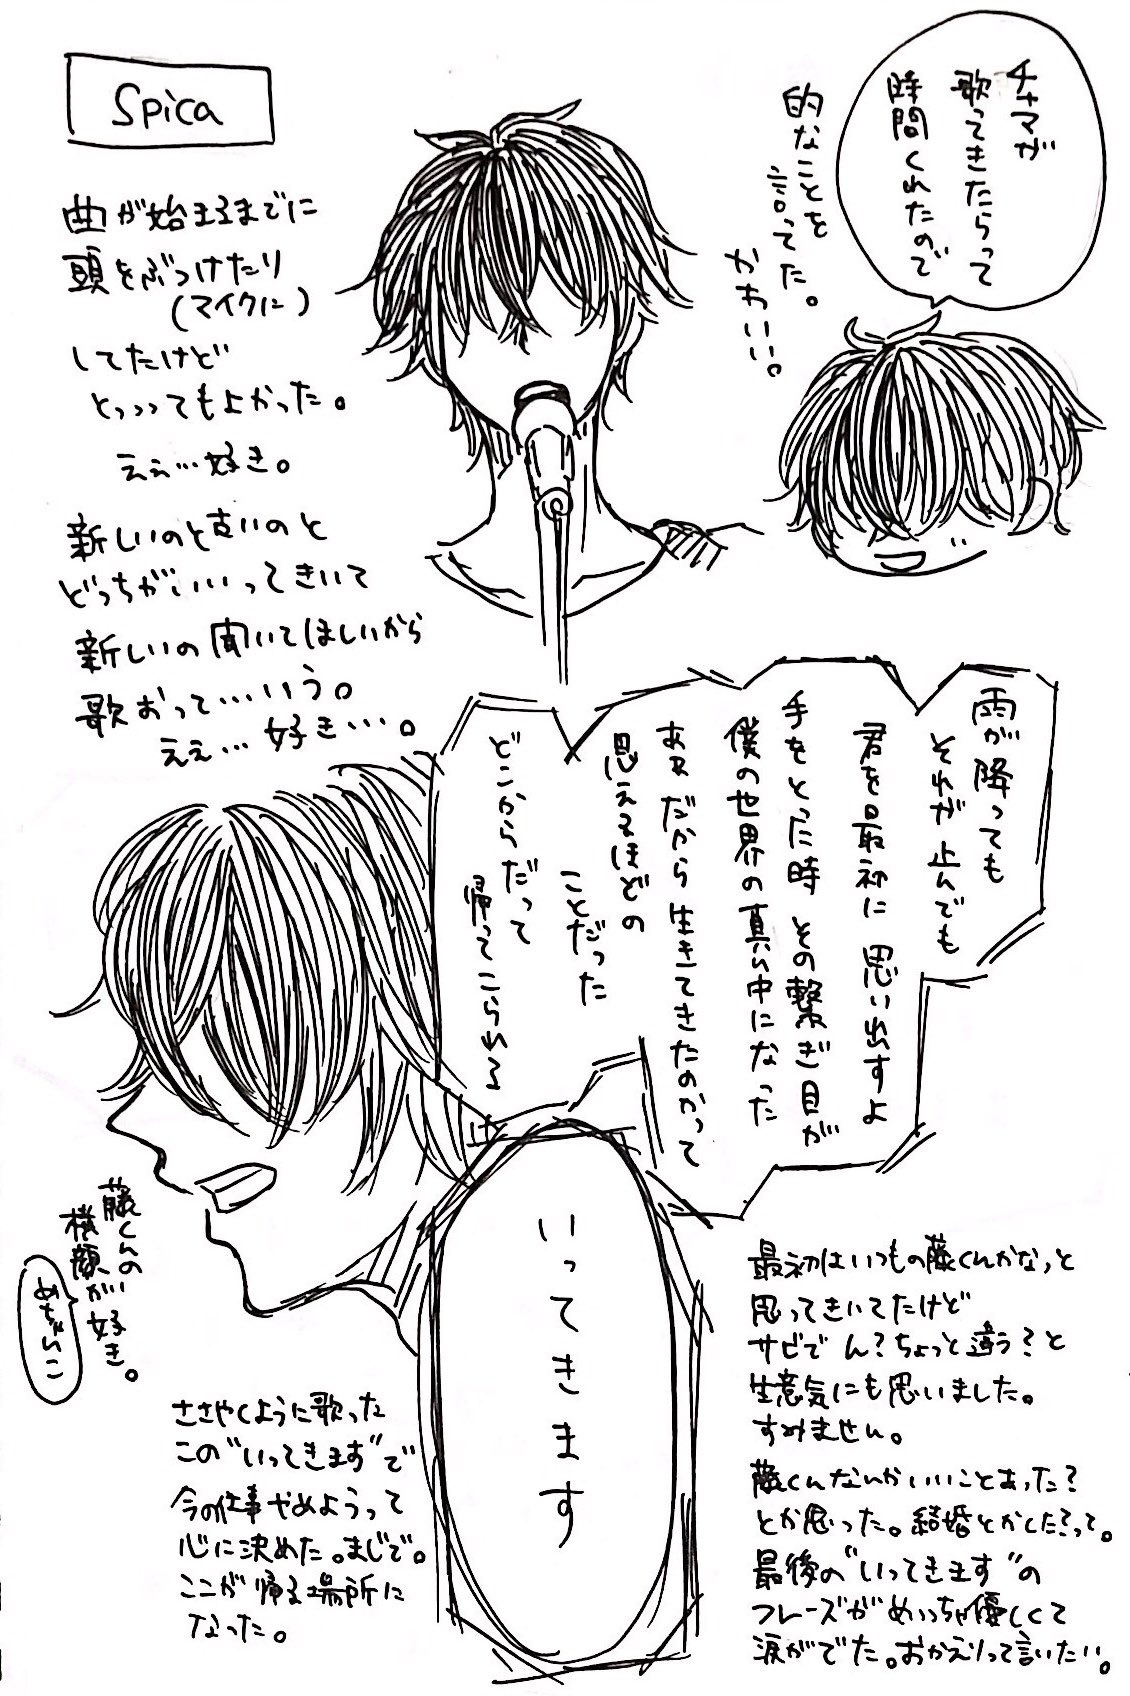 Spica
チャマが
歌ってきたらって
時間くれたので
的なことを
言ってた。
かわいい。
曲が始まるまでに
頭をぶつけたり
(マイクに)
してたけど
とっっってもよかった。
ええ…好き。
新しいのと古いのと
どっちがいいってきいて
新しいの聞いてほしいから
歌おって…いう。
ええ…好き…。
雨が降っても
それが止んでも
君を最初に思い出すよ
手をとった時 その繋ぎ目が
僕の世界の真ん中になった
あぁ だから生きてきたのかって
思えるほどの
ことだった
どこからだって
帰ってこられる
いってきます
藤くんの
横顔が好き。
めちゃんこ
ささやくように歌った
この"いってきます"で
今の仕事やめようって
心に決めた。まじで。
ここが帰る場所に
なった。
最初はいつもの藤くんかなっと
思ってきいてたけど
サビで ん?ちょっと違う?と
生意気にも思いました。
すみません。
藤くんなんかいいことあった?
とか思った。結婚とかした?って。
最後の"いってきます"の
フレーズがめっちゃ優しくて
涙がでた。おかえりって言いたい。